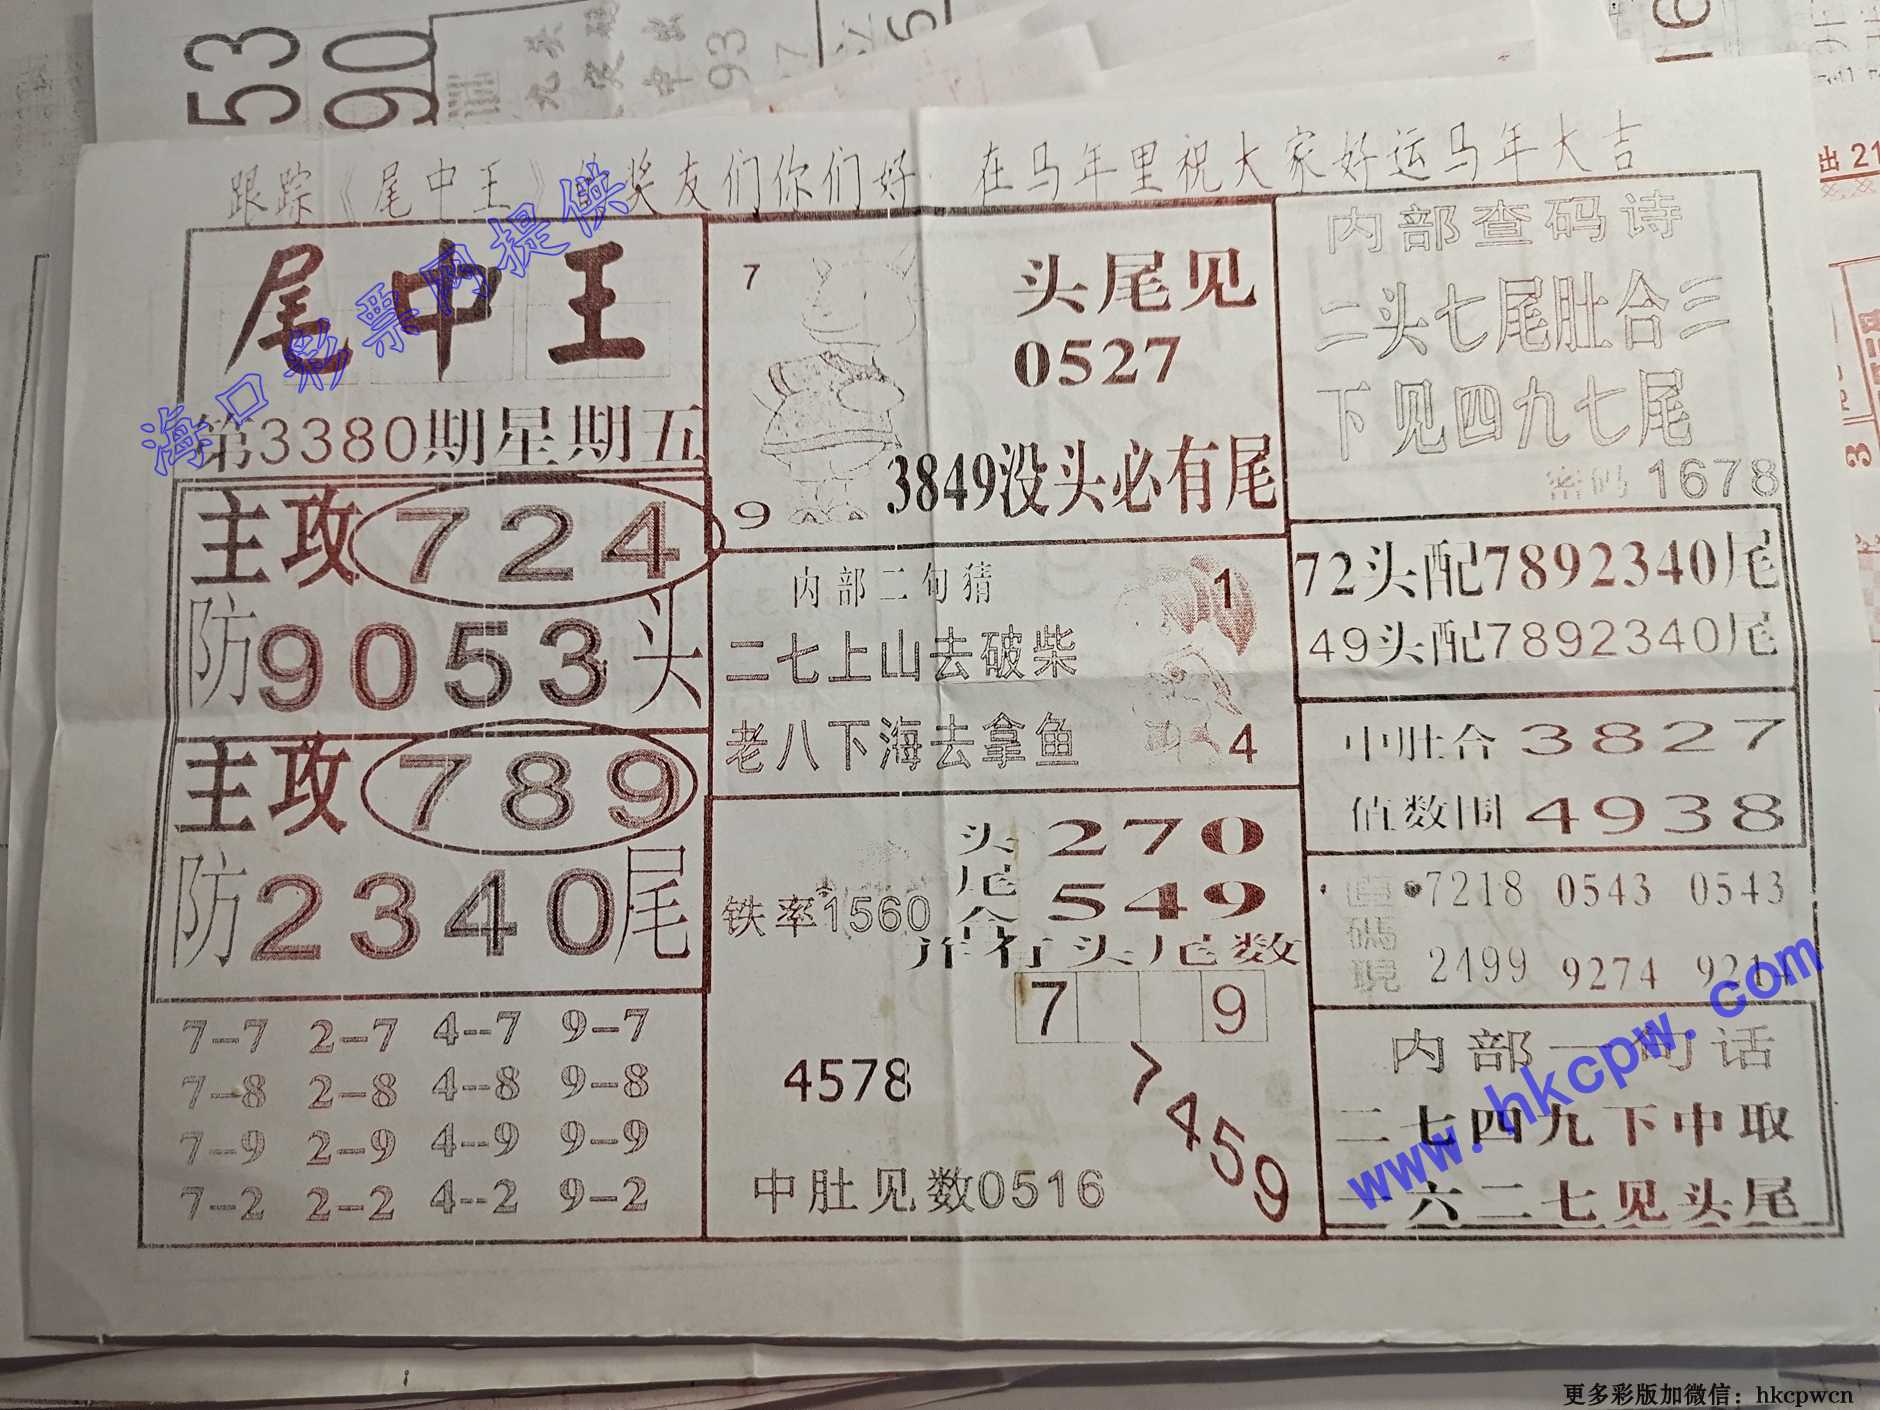 53
90
93
跟踪《尾中王》的奖友们你们好 在马年里祝大家好运马年大吉
海口彩票网提供
尾中王
第3380期星期五
主攻724
防9053头
主攻789
防2340尾
7--7 2--7 4--7 9--7
7--8 2--8 4--8 9--8
7--9 2--9 4--9 9--9
7--2 2--2 4--2 9--2
7
头尾见
0527
9
3849没头必有尾
内部二句猜
1
二七上山去破柴
老八下海去拿鱼
4
头270
尾
合549
铁率1560
并有头尾数
7 9
4578
7459
中肚见数0516
内部查码诗
二头七尾肚合三
下见四九七尾
密码1678
72头配7892340尾
49头配7892340尾
中肚合3827
值数围4938
直碼現
7218 0543 0543
2499 9274 9214
内部一句话
二七四九下中取
一六二七见头尾
www.hkcpw.com
出21
3
更多彩版加微信：hkcpwcn